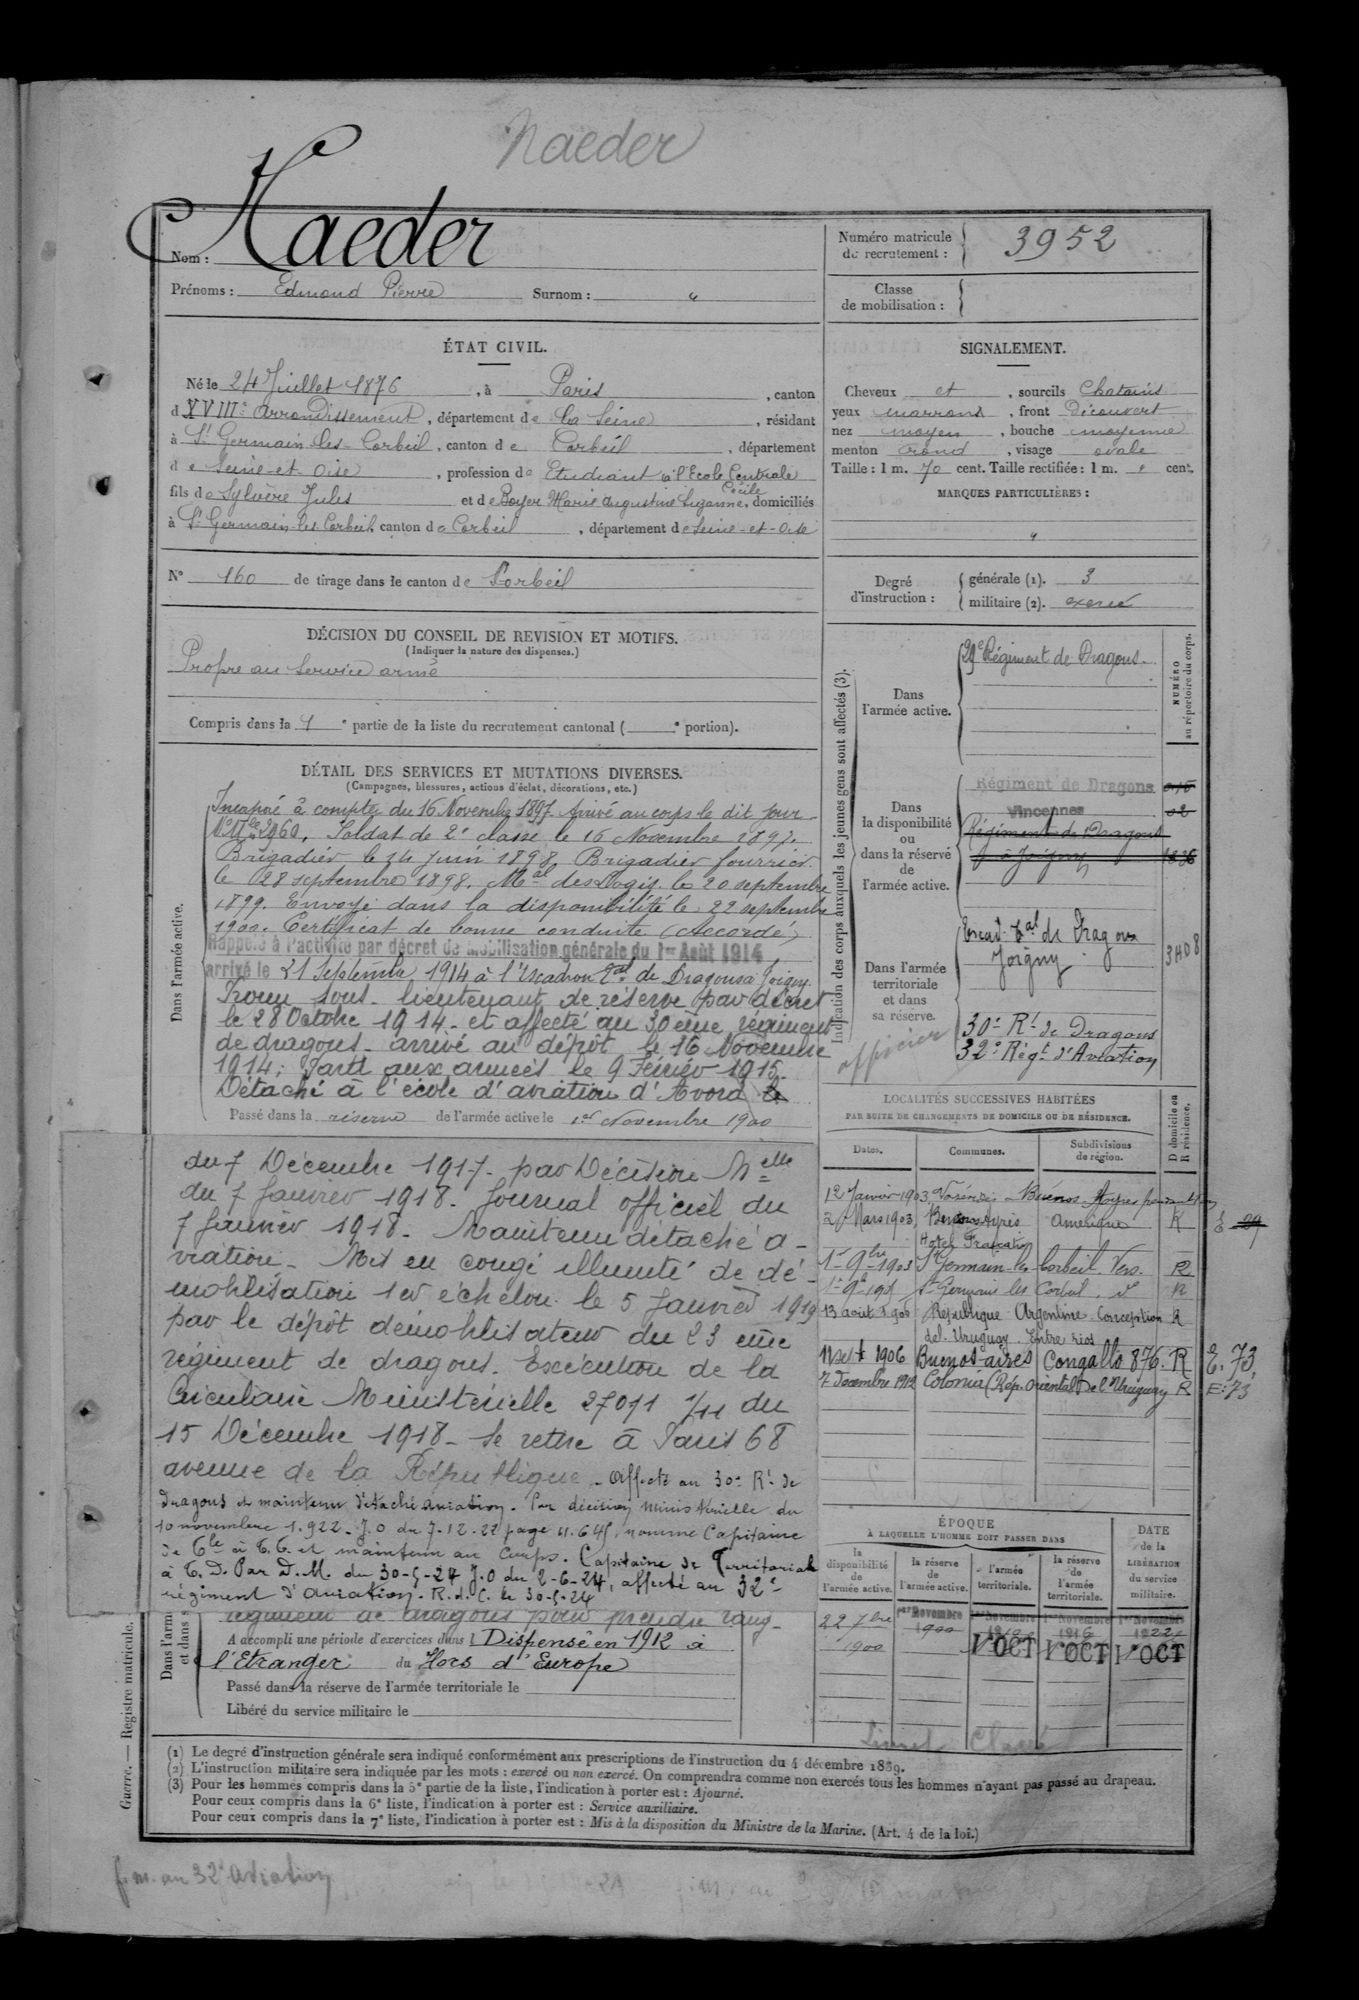 Naeder
Naeder
Nom :
Prénoms : Edmond Pierre Surnom : "
Numéro matricule de recrutement : 3952
Classe de mobilisation :
ÉTAT CIVIL.
Né le 24 Juillet 1876, à Paris, canton
d XVIIIe arrondissement, département de la Seine, résidant
à St Germain-les-Corbeil, canton de Corbeil, département
de Seine-et-Oise, profession de Etudiant à l'Ecole Centrale
fils de Sylvère Jules et de Boyer Marie Augustine Suzanne Cécile, domiciliés
à St Germain-les-Corbeil, canton de Corbeil, département de Seine-et-Oise
N° 160 de tirage dans le canton de Corbeil
SIGNALEMENT.
Cheveux et, sourcils Chatains
yeux marrons, front Découvert
nez moyen, bouche moyenne
menton rond, visage ovale
Taille : 1 m. 70 cent. Taille rectifiée : 1 m. " cent.
MARQUES PARTICULIÈRES :
"
Degré d'instruction : générale (1). 3
militaire (2). exercé
DÉCISION DU CONSEIL DE REVISION ET MOTIFS.
(Indiquer la nature des dispenses.)
Propre au service armé
Compris dans la 1e partie de la liste du recrutement cantonal ( e portion).
DÉTAIL DES SERVICES ET MUTATIONS DIVERSES.
(Campagnes, blessures, actions d'éclat, décorations, etc.)
Dans l'armée active.
Incorporé à compter du 16 Novembre 1897. Arrivé au corps le dit jour
2960. Soldat de 2e classe le 16 Novembre 1897.
Brigadier le 24 juin 1898. Brigadier fourrier
le 28 septembre 1898. Mal des Logis le 20 septembre
1899. Envoyé dans la disponibilité le 22 septembre
1900. Certificat de bonne conduite (Accordé)
Rappelé à l'activité par décret de mobilisation générale du 1er Août 1914
arrivé le 21 Septembre 1914 à l'Escadron Tal de Dragons à Joigny.
Promu sous-lieutenant de réserve par décret
le 28 Octobre 1914 - et affecté au 30ème régiment
de dragons - arrivé au dépôt le 16 Novembre
1914; Parti aux armées le 9 Février 1915.
Détaché à l'école d'aviation d'Avord
Passé dans la réserve de l'armée active le 1er Novembre 1900
du 7 Décembre 1917 - par Décision Melle
du 7 Janvier 1918 - Journal officiel du
7 Janvier 1918 - Maintenu détaché a-
viation - Mis en congé illimité de dé-
mobilisation 1er échelon le 5 Janvier 1919
par le dépôt démobilisateur du 23 ème
régiment de dragons. Exécution de la
Circulaire Ministérielle 27011 1/11 du
15 Décembre 1918 - Se retire à Paris 68
avenue de la République - Affecté au 30e Rt de
dragons et maintenu détaché aviation. Par décision ministérielle du
10 novembre 1.922 - J.O du 7-12-22 page 11.645, nommé Capitaine
de Cle à T.T. et maintenu au corps. Capitaine de Territoriale
à T.D. Par D.M. du 30-5-24 J.O du 2-6-24, affecté au 32e
régiment d'aviation. R.d.C. le 30-5-24
régiment de dragons pour prendre rang
A accompli une période d'exercices dans Dispensé en 1912 à
l'Etranger du Hors d'Europe
Passé dans la réserve de l'armée territoriale le
Libéré du service militaire le
Indication des corps auxquels les jeunes gens sont affectés (3).
NUMÉRO au répertoire du corps.
Dans l'armée active.
29e Régiment de Dragons.
Dans la disponibilité ou dans la réserve de l'armée active.
Régiment de Dragons
Vincennes
Régiment de Dragons
à Joigny
Dans l'armée territoriale et dans sa réserve.
Escad. Tal de Dragons
Joigny
3408
officier
30e Rt de Dragons
32e Régt d'Aviation
LOCALITÉS SUCCESSIVES HABITÉES
PAR SUITE DE CHANGEMENTS DE DOMICILE OU DE RÉSIDENCE.
Dates. Communes. Subdivisions de région. D domicile ou R résidence.
12 Janvier 1903 Buenos-Ayres
2 Mars 1903 Buenos Ayres Amérique R
Hotel
1er 9bre 1903 St Germain-les-Corbeil. Vers. R
St Germain les Corbeil. R
13 août République Argentine Conception R
del Uruguay. Entre rios
11 1906 Buenos-aires Congallo 876. R E. 73
7 Décembre 1912 Colonia (Rép. Orientale de l'Uruguay R E: 73
ÉPOQUE
À LAQUELLE L'HOMME DOIT PASSER DANS
la disponibilité de l'armée active. la réserve de l'armée active. l'armée territoriale. la réserve de l'armée territoriale.
DATE de la LIBÉRATION du service militaire.
22 7bre 1900
1er Novembre 1900
1er Novembre
1er Novembre 1916
1er Novembre 1922
1er OCT 1er OCT 1er OCT
Livret Classé
(1) Le degré d'instruction générale sera indiqué conformément aux prescriptions de l'instruction du 4 décembre 1889.
(2) L'instruction militaire sera indiquée par les mots : exercé ou non exercé. On comprendra comme non exercés tous les hommes n'ayant pas passé au drapeau.
(3) Pour les hommes compris dans la 5e partie de la liste, l'indication à porter est : Ajourné.
Pour ceux compris dans la 6e liste, l'indication à porter est : Service auxiliaire.
Pour ceux compris dans la 7e liste, l'indication à porter est : Mis à la disposition du Ministre de la Marine. (Art. 4 de la loi.)
Guerre. — Registre matricule.
f. m. au 32e Aviation